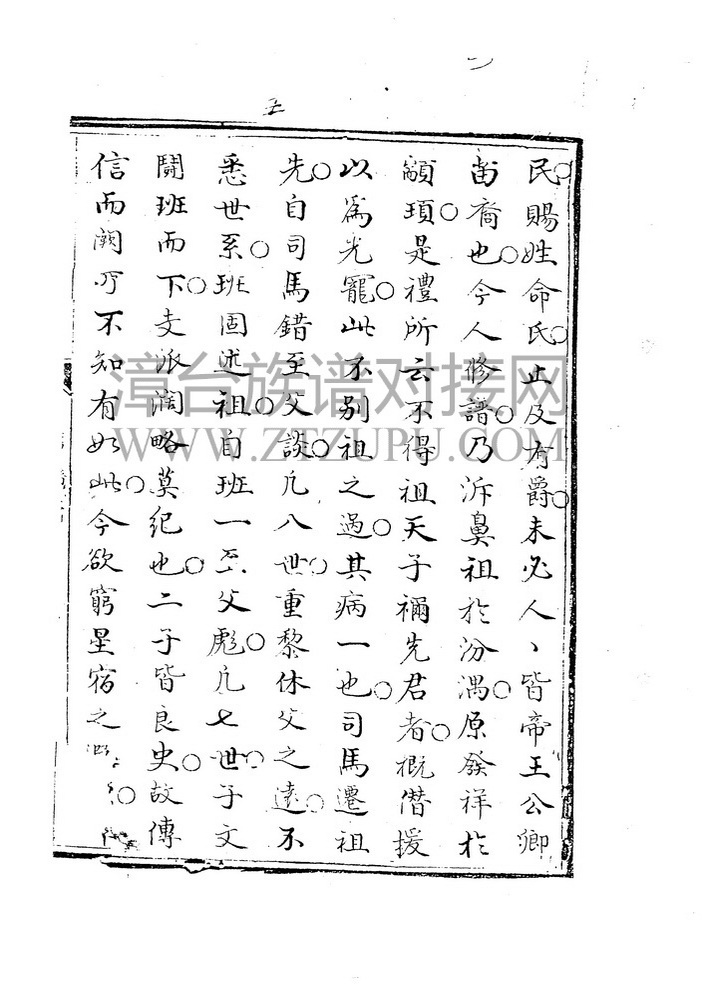 五
民賜姓命氏止及有爵未必人丶皆帝王公卿
苗裔也今人修譜乃泝鼻祖於汾渦原發祥於
顓頊是禮所云不得祖天子禰先君者概僭援
以為光寵此不別祖之過其病一也司馬遷祖
先自司馬錯至父談凡八世重黎休父之遠不
悉世系班固述祖自班一至父彪凡七世子文
鬪班而下支派濶略莫紀也二子皆良史故傳
信而闕所不知有如此今欲窮星宿之
漳台族谱对接网
WWW.ZTZUPU.COM